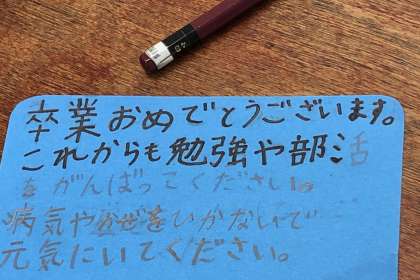 卒業おめでとうございます。
これからも勉強や部活
をがんばってください。
病気やかぜをひかないで
元気にいてください。
4B